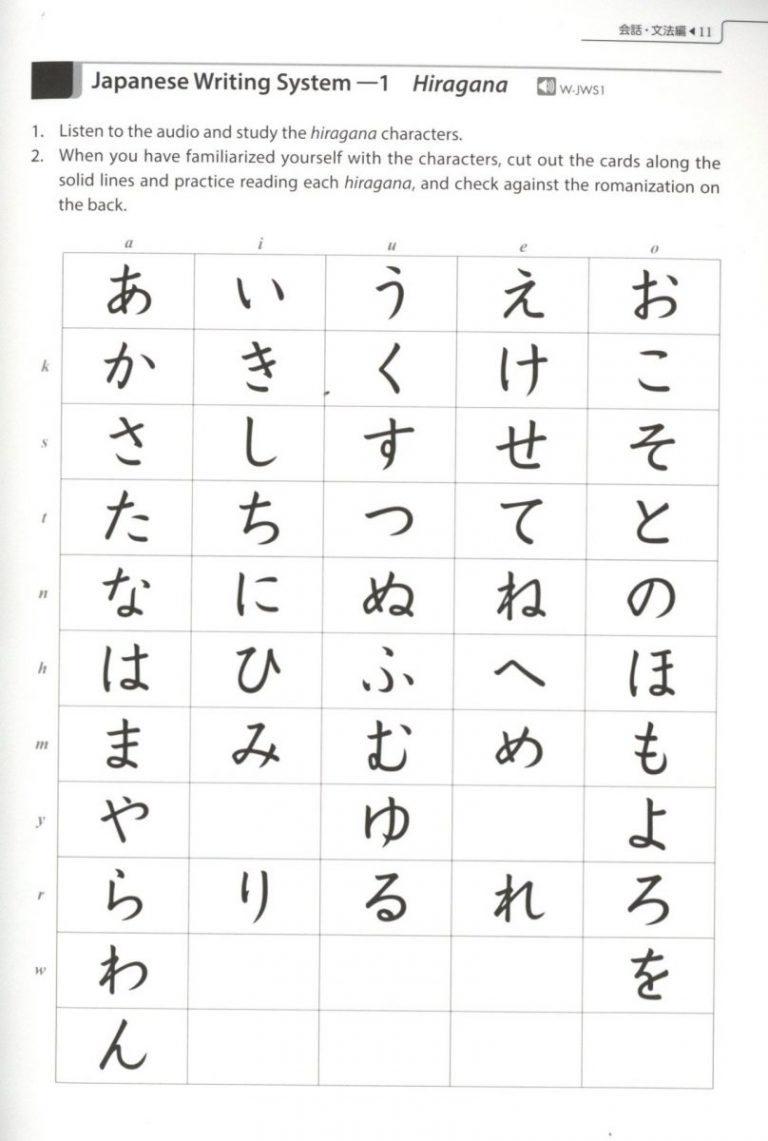 会話・文法編◀11
Japanese Writing System —1 Hiragana W-JWS1
1. Listen to the audio and study the hiragana characters.
2. When you have familiarized yourself with the characters, cut out the cards along the
solid lines and practice reading each hiragana, and check against the romanization on
the back.
a i u e o
あ い う え お
k か き く け こ
s さ し す せ そ
t た ち つ て と
n な に ぬ ね の
h は ひ ふ へ ほ
m ま み む め も
y や ゆ よ
r ら り る れ ろ
w わ を
ん